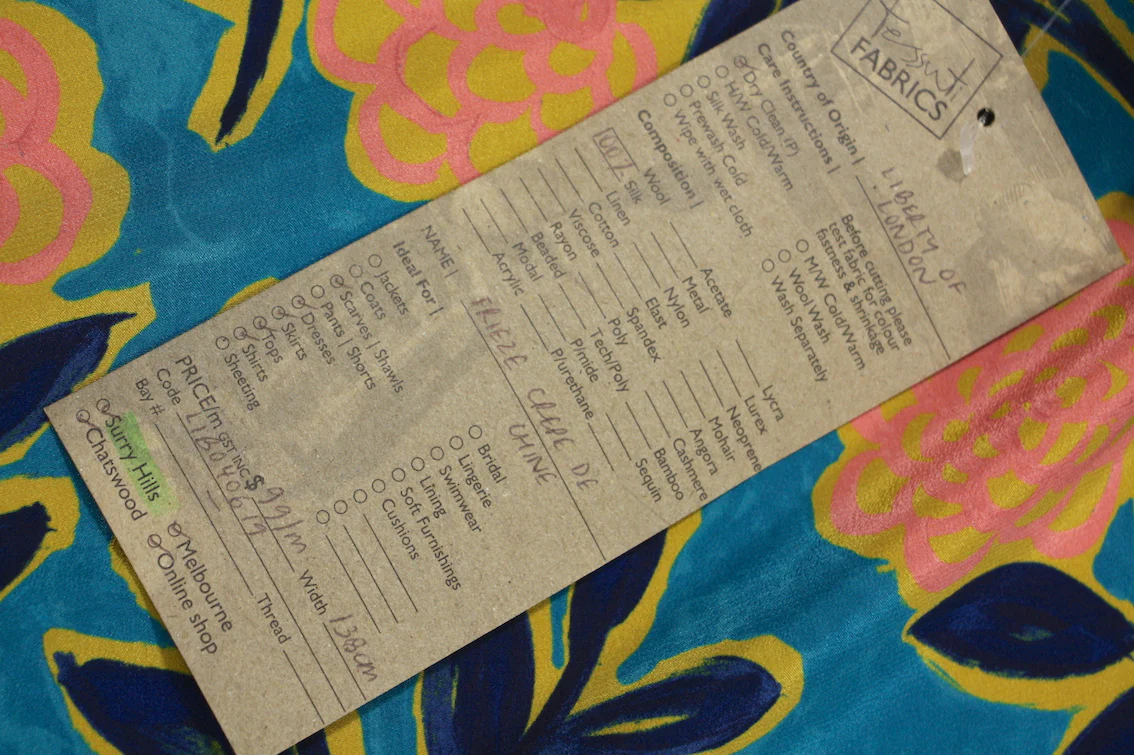 Tessuti
FABRICS
Country of Origin | LIBERTY OF
LONDON
Care Instructions |
Dry Clean (P)
H/W Cold/Warm
Silk Wash
Prewash Cold
Wipe with wet cloth
Before cutting please
test fabric for colour
fastness & shrinkage
M/W Cold/Warm
Wool Wash
Wash Separately
Composition |
Wool
100% Silk
Linen
Cotton
Viscose
Rayon
Beaded
Modal
Acrylic
Acetate
Metal
Nylon
Elast
Spandex
Poly
Tech/Poly
P/mide
P/urethane
Lycra
Lurex
Neoprene
Mohair
Angora
Cashmere
Bamboo
Sequin
NAME | FRIEZE CREPE DE
CHINE
Ideal For |
Jackets
Coats
Scarves | Shawls
Pants | Shorts
Dresses
Skirts
Tops
Shirts
Sheeting
Bridal
Lingerie
Swimwear
Lining
Soft Furnishings
Cushions
PRICE/m GST INC $ 99/m Width 138cm
Code LIB040619
Bay # Thread
Surry Hills
Chatswood
Melbourne
Online shop